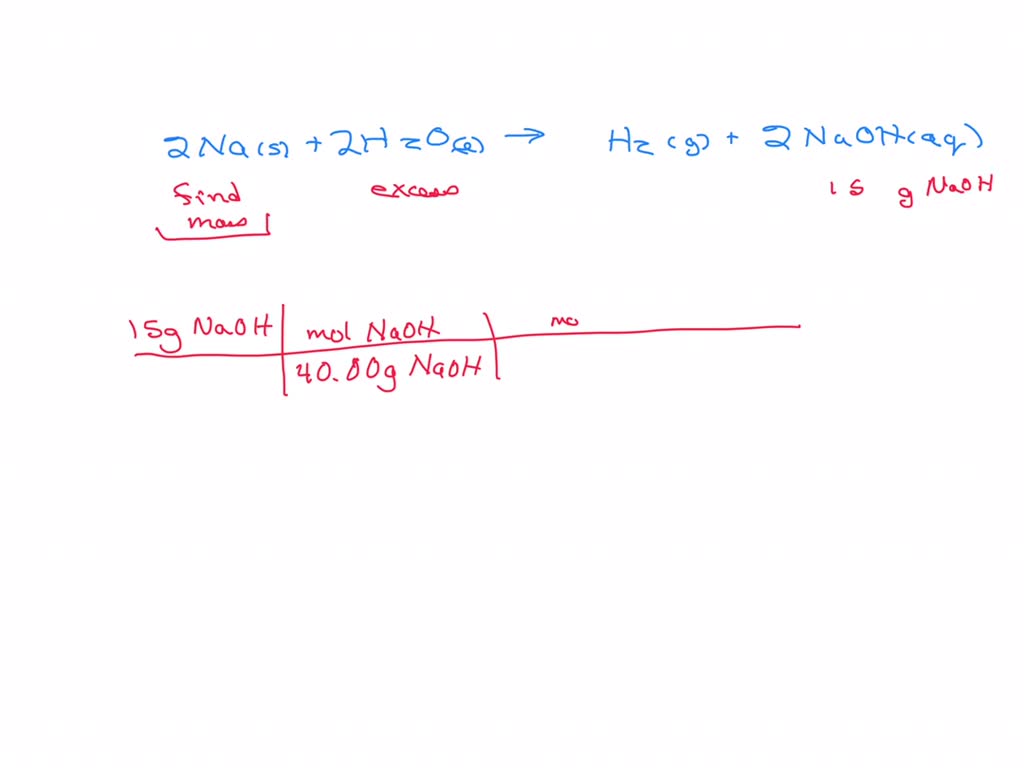 2Na(s) + 2H2O(l) → H2(g) + 2NaOH(aq)
find excess 15 g NaOH
mass
15g NaOH mol NaOH mo
40.00g NaOH